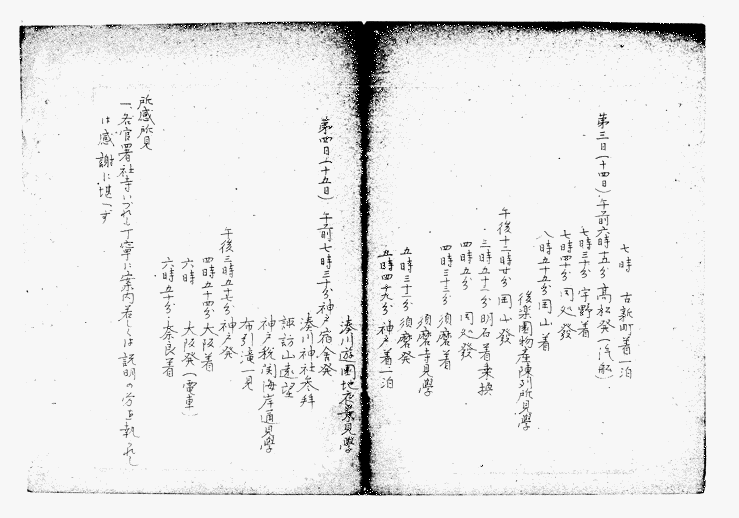 七時 古新町着一泊
第三日(十四日) 午前六時十五分 高松発(汽船)
七時三十分 宇野着
七時四十分 同処發
八時五十五分 岡山着
後楽園物産陳列所見學
午後十二時廿分 岡山發
三時五十二分 明石着乗換
四時五分 同処發
四時三十三分 須磨着
須磨寺見學
五時三十三分 須磨發
五時四十九分 神戸着一泊
第四日(十五日) 午前七時三十分 神戸宿舎発
湊川遊園地 見學
湊川神社参拜
諏訪山遠望
神戸税関海岸通見學
布引滝一見
午後三時五十七分 神戸発
四時五十四分 大阪着
六時 大阪発(電車)
六時五十分 奈良着
所感所見
一、各官署社寺いづれも丁寧に案内若しくは説明の労を執られし
は感謝に堪へず